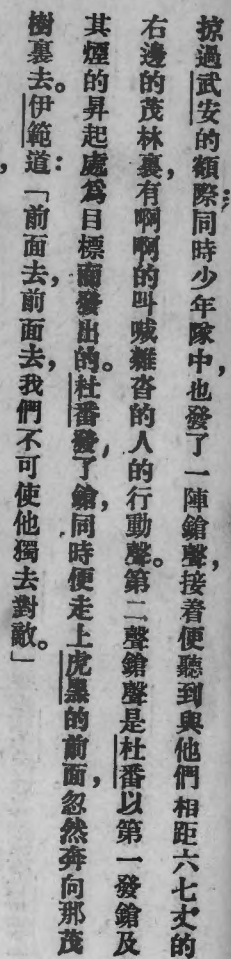 掠過武安的額際；同時少年隊中，也發了一陣鎗聲，接着便聽到與他們相距六七丈的
右邊的茂林裏，有啊啊的叫喊雜沓的人的行動聲。第二聲鎗聲是杜番以第一發鎗及
其煙的昇起處爲目標而發出的。杜番發了鎗，同時便走上虎黑的前面，忽然奔向那茂
樹裏去。伊範道：「前面去，前面去，我們不可使他獨去對敵。」